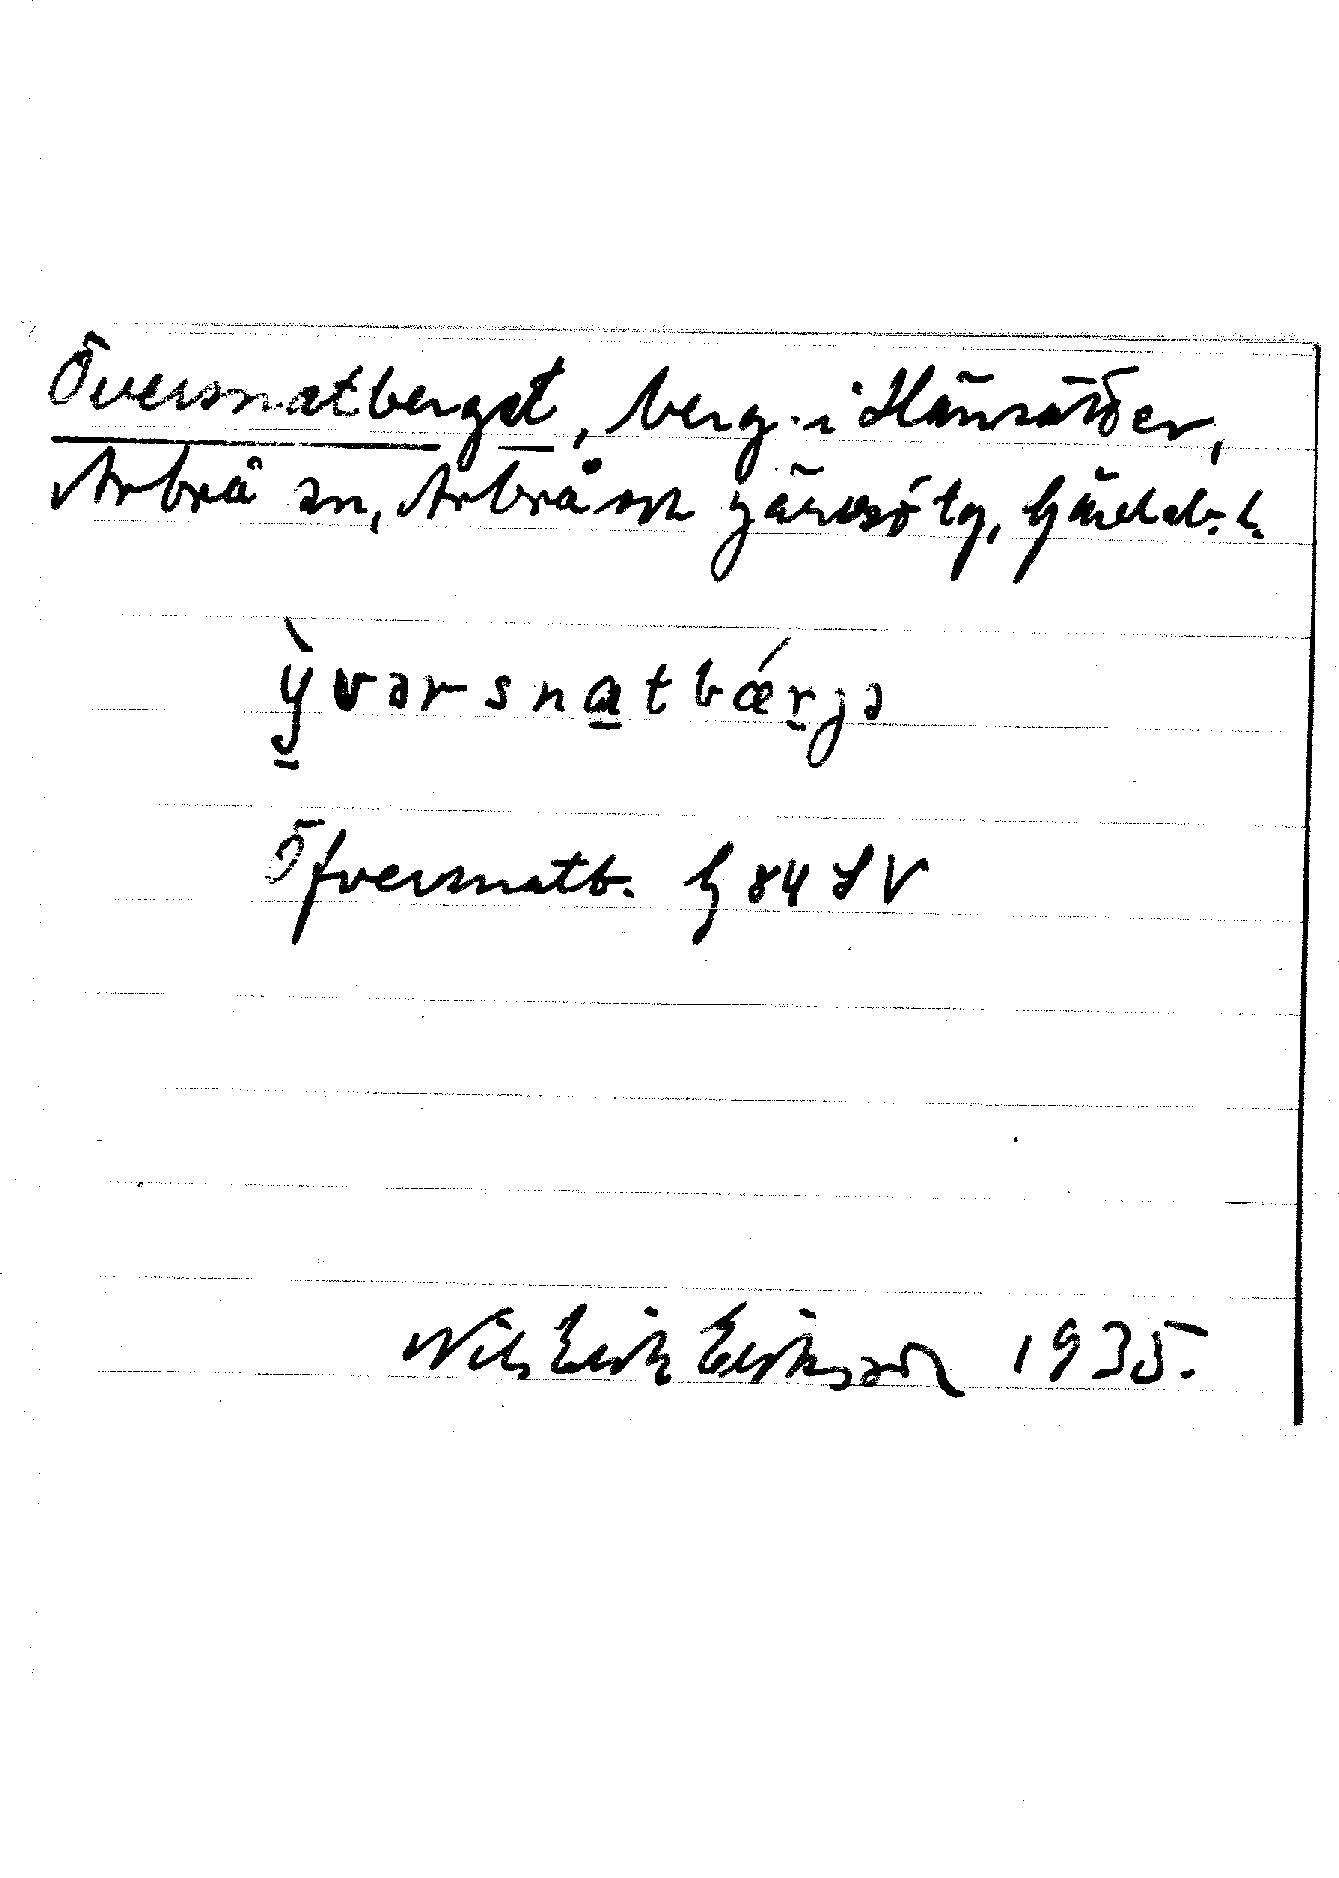 Översnatberget, berg i Hänsätter,
Arbrå sn, Arbrå och Järvsö tg, Gävleb. l.
ỳ̠vərsna̠tbǽr̠jə
Öfversnatb. h 84 SV
Nils Erik Eriksson 1935.